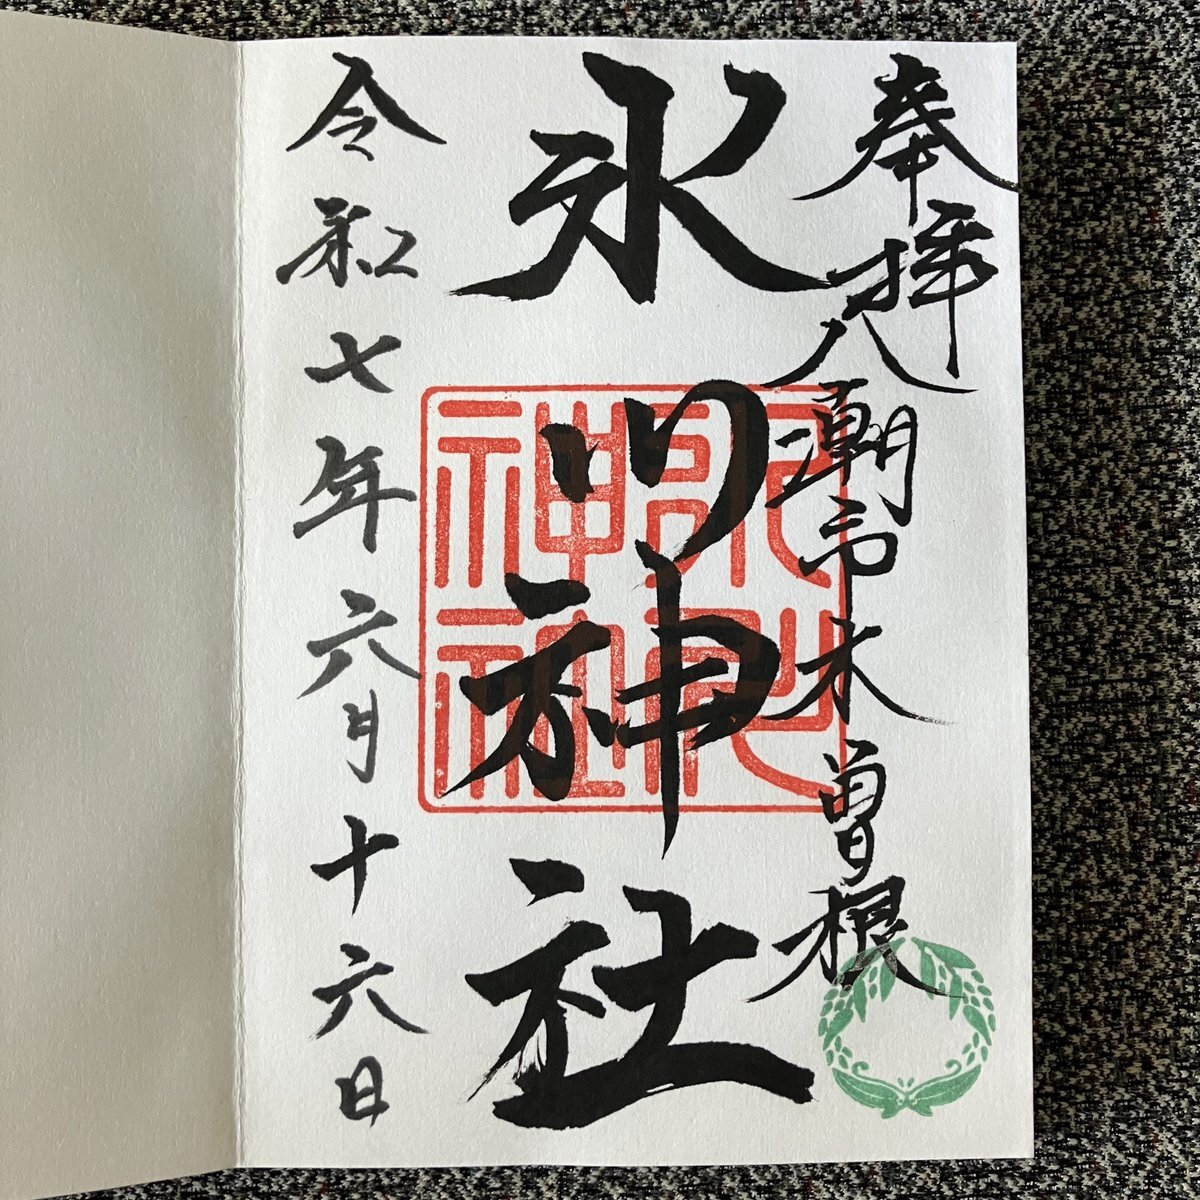 奉拝
八潮市木曽根
氷川神社
令和七年六月十六日